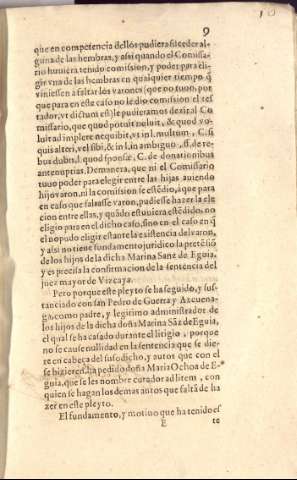 9
que en competencia dellos pudiera suceder al-
guna de las hembras, y assi quando el Comissa-
rio huviera tenido comission, y poder para eli-
gir vna de las hembras en qualquier tiempo q̃
viniessen à faltar los varones (que no tuuo, por
que para en este caso no le dio comission el tes
tador, vt dictum est) le pudieramos dezir al Co
missario, que quod potuit noluit, & quod vo-
luit adimplere nequibit, vt in l. multum, C. si
quis alteri, vel sibi, & in l. in ambiguo, ff. de re-
bus dubijs, l. quod sponsæ, C. de donationibus
ante nuptias. De manera, que ni el Comissario
tuuo poder para elegir entre las hijas auiendo
hijo varon, ni la comission se estẽdio, à que para
en caso que faltasse varon, pudiesse hazer la ele
cion entre ellas, y quãdo estuviera estẽdido, no
eligio para en el dicho caso, sino en el caso en q̃
el no pudo eligir estante la existencia del varon,
y assi no tiene fundamento juridico la pretẽsiõ
de los hijos de la dicha Marina Sanz de Eguia,
y es precisa la confirmacion de la sentencia del
juez mayor de Vizcaya.
Pero porque este pleyto se ha seguido, y sus-
tanciado con san Pedro de Guerra y Azcuena-
ga, como padre, y legitimo administrador de
los hijos de la dicha doña Marina Sãz de Eguia,
el qual se ha casado durante el litigio, porque
no se cause nullidad en la sentencia que se die-
re en cabeça del susodicho, y autos que con el
se hizieren, ha pedido doña Maria Ochoa de E-
guia, que se les nombre curador ad litem, con
quien se hagan los demas autos que faltã de ha
zer en este pleyto.
El fundamento, y motiuo que ha tenido es
E te